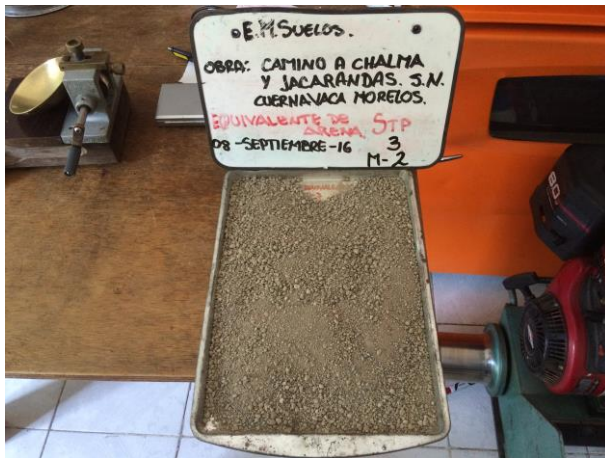 •E.M. SUELOS.
OBRA: CAMINO A CHALMA
Y JACARANDAS. S.N.
CUERNAVACA MORELOS.
EQUIVALENTE DE
ARENA STP
08-SEPTIEMBRE-16 3
M-2
80